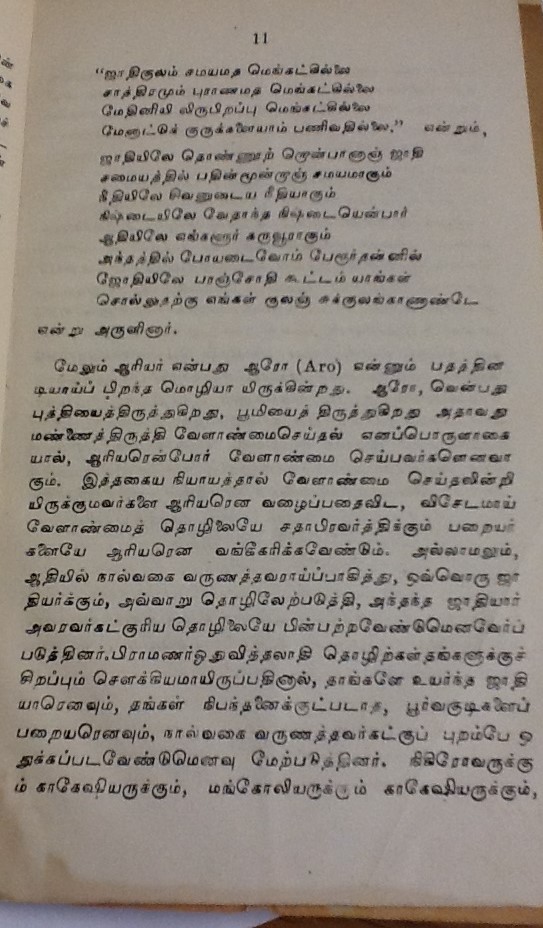 11
“ஜாதிகுலம் சமயமத மெங்கட்கில்லை
சாத்திரமும் புராணமத மெங்கட்கில்லை
மேதினியி லிருபிறப்பு மெங்கட்கில்லை
மேனாட்டுக் குருக்களையாம் பணிவதில்லை.” என்றும்,
ஜாதியிலே தொண்ணூற் றொன்பானாஞ் ஜாதி
சமையத்தில் பதின்மூன்றாஞ் சமயமாகும்
நீதியிலே சிவனுடைய நீதியாகும்
நிஷ்டையிலே வேதாந்த நிஷ்டையென்பார்
ஆதியிலே எங்களூர் கருவூராகும்
அந்தத்தில் போயடைவோம் பேரூர்தன்னில்
ஜோதியிலே பரஞ்சோதி கூட்டம் யாங்கள்
சொல்லுதற்கு எங்கள் குலஞ் சுக்குலங்காணாண்டே
என்று அருளினார்.
மேலும் ஆரியர் என்பது ஆரோ (Aro) என்னும் பதத்தின
டியாய்ப் பிறந்த மொழியா யிருக்கின்றது. ஆரோ, வென்பது
புத்தியைத்திருத்துகிறது, பூமியைத் திருத்துகிறது அதாவது
மண்ணைத்திருத்தி வேளாண்மைசெய்தல் எனப்பொருளாகை
யால், ஆரியரென்போர் வேளாண்மை செய்பவர்களெனவா
கும். இத்தகைய நியாயத்தால் வேளாண்மை செய்தலின்றி
யிருக்குமவர்களை ஆரியரென வழைப்பதைவிட, விசேடமாய்
வேளாண்மைத் தொழிலையே சதாபிரவர்த்திக்கும் பறையர்
களையே ஆரியரென வங்கீகரிக்கவேண்டும். அல்லாமலும்,
ஆதியில் நால்வகை வருணத்தவராய்ப்பாகித்து, ஒவ்வொரு ஜா
தியர்க்கும், அவ்வாறு தொழிலேற்படுத்தி, அந்தந்த ஜாதியார்
அவரவர்கட்குரிய தொழிலையே பின்பற்றவேண்டுமெனவேர்ப்
படுத்தினர். பிராமணர் ஓதுவித்தலாதி தொழிற்கள்தங்களுக்குச்
சிறப்பும் சௌக்கியமாயிருப்பதினால், தாங்களே உயர்ந்த ஜாதி
யாரெனவும், தங்கள் நிபந்தனைக்குட்படாத, பூர்வகுடிகளைப்
பறையரெனவும், நால்வகை வருணத்தவர்கட்குப் புறம்பே ஒ
துக்கப்படவேண்டுமெனவு மேற்படுத்தினர். நிகிரோவருக்கு
ம் காகேஷியருக்கும், மங்கோலியருக்கும் காகேஷியருக்கும்,